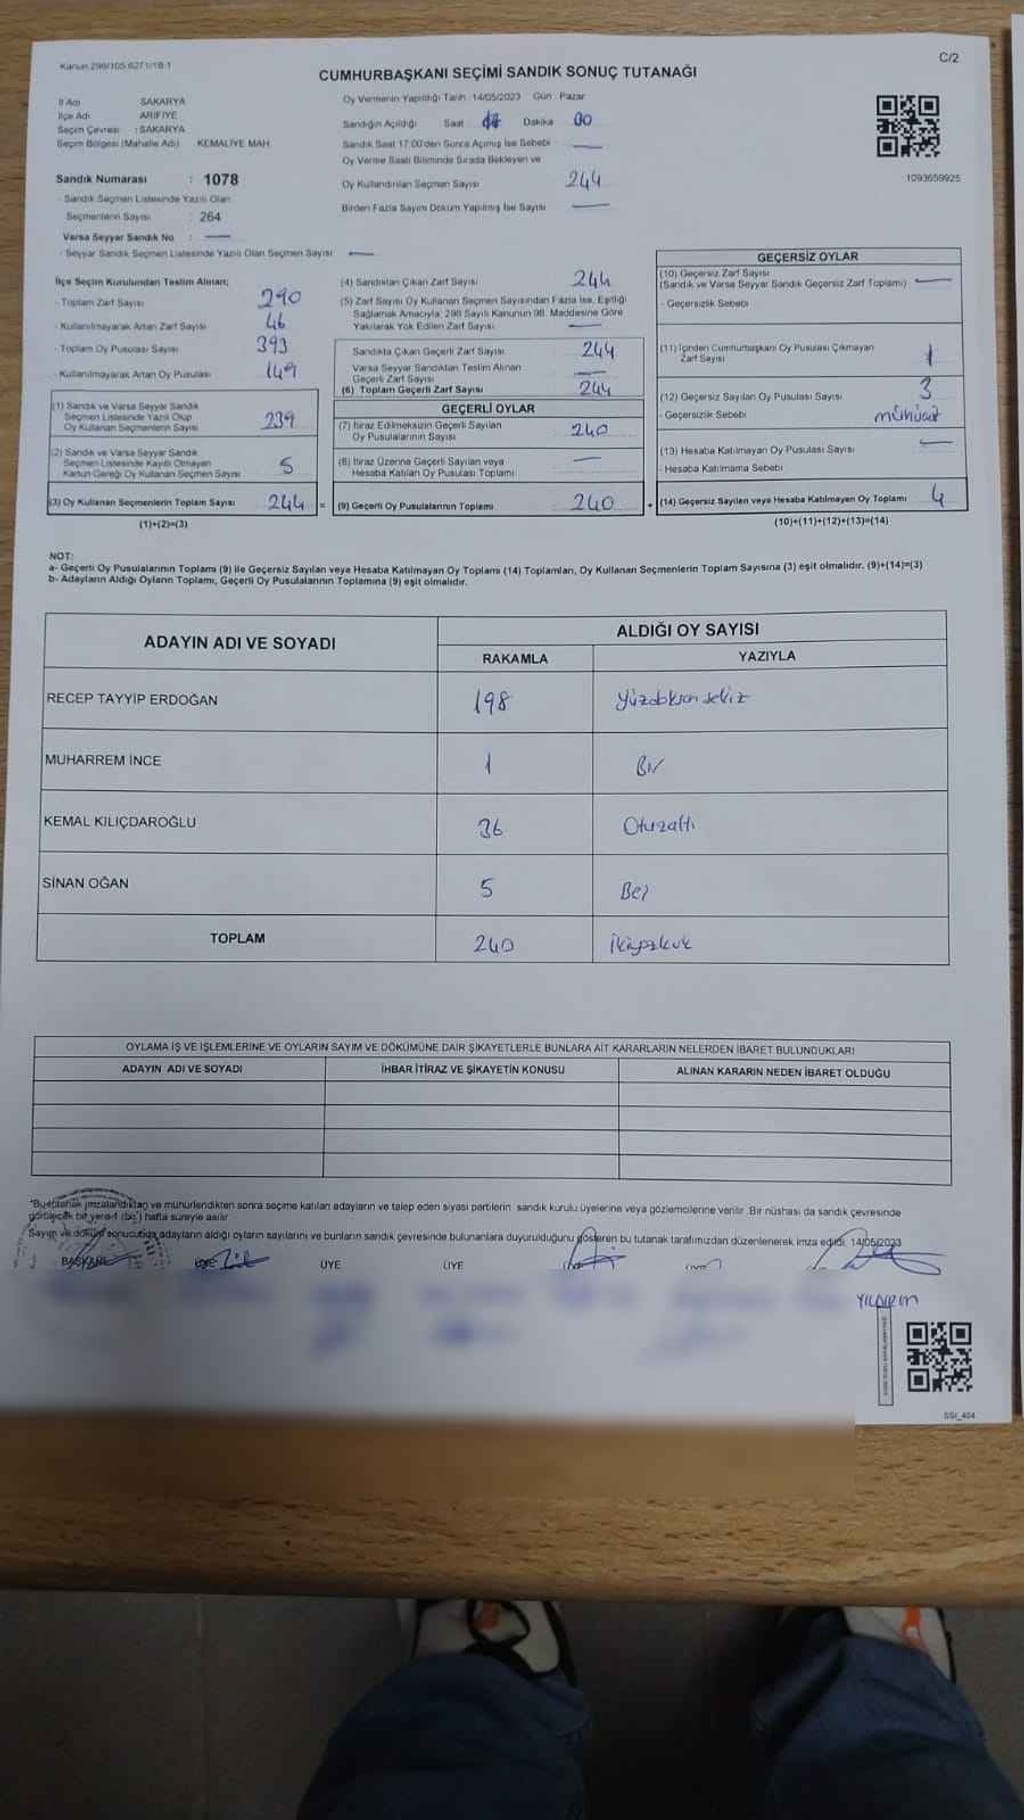 Kanun 298/105.6271/18-1
C/2
CUMHURBAŞKANI SEÇİMİ SANDIK SONUÇ TUTANAĞI
İl Adı SAKARYA
İlçe Adı ARİFİYE
Seçim Çevresi : SAKARYA
Seçim Bölgesi (Mahalle Adı) KEMALİYE MAH
Sandık Numarası : 1078
- Sandık Seçmen Listesinde Yazılı Olan
Seçmenlerin Sayısı : 264
Varsa Seyyar Sandık No : —
- Seyyar Sandık Seçmen Listesinde Yazılı Olan Seçmen Sayısı —
Oy Vermenin Yapıldığı Tarih : 14/05/2023 Gün : Pazar
Sandığın Açıldığı Saat Dakika 00
Sandık Saat 17:00'den Sonra Açılmış İse Sebebi —
Oy Verme Saati Bitiminde Sırada Bekleyen ve
Oy Kullandırılan Seçmen Sayısı 244
Birden Fazla Sayım Döküm Yapılmış İse Sayısı —
1093659925
İlçe Seçim Kurulundan Teslim Alınan;
- Toplam Zarf Sayısı 290
- Kullanılmayarak Artan Zarf Sayısı 46
- Toplam Oy Pusulası Sayısı 393
- Kullanılmayarak Artan Oy Pusulası 149
(1) Sandık ve Varsa Seyyar Sandık
Seçmen Listesinde Yazılı Olup
Oy Kullanan Seçmenlerin Sayısı 239
(2) Sandık ve Varsa Seyyar Sandık
Seçmen Listesinde Kayıtlı Olmayan
Kanun Gereği Oy Kullanan Seçmen Sayısı 5
(3) Oy Kullanan Seçmenlerin Toplam Sayısı 244 =
(1)+(2)=(3)
(4) Sandıktan Çıkan Zarf Sayısı 244
(5) Zarf Sayısı Oy Kullanan Seçmen Sayısından Fazla İse, Eşitliği
Sağlamak Amacıyla, 298 Sayılı Kanunun 98. Maddesine Göre
Yakılarak Yok Edilen Zarf Sayısı —
Sandıkta Çıkan Geçerli Zarf Sayısı 244
Varsa Seyyar Sandıktan Teslim Alınan
Geçerli Zarf Sayısı —
(6) Toplam Geçerli Zarf Sayısı 244
GEÇERLİ OYLAR
(7) İtiraz Edilmeksizin Geçerli Sayılan
Oy Pusulalarının Sayısı 240
(8) İtiraz Üzerine Geçerli Sayılan veya
Hesaba Katılan Oy Pusulası Toplamı —
(9) Geçerli Oy Pusulalarının Toplamı 240 +
GEÇERSİZ OYLAR
(10) Geçersiz Zarf Sayısı
(Sandık ve Varsa Seyyar Sandık Geçersiz Zarf Toplamı) —
- Geçersizlik Sebebi
(11) İçinden Cumhurbaşkanı Oy Pusulası Çıkmayan
Zarf Sayısı 1
(12) Geçersiz Sayılan Oy Pusulası Sayısı 3
- Geçersizlik Sebebi
(13) Hesaba Katılmayan Oy Pusulası Sayısı —
- Hesaba Katılmama Sebebi
(14) Geçersiz Sayılan veya Hesaba Katılmayan Oy Toplamı 4
(10)+(11)+(12)+(13)=(14)
NOT:
a- Geçerli Oy Pusulalarının Toplamı (9) ile Geçersiz Sayılan veya Hesaba Katılmayan Oy Toplamı (14) Toplamları, Oy Kullanan Seçmenlerin Toplam Sayısına (3) eşit olmalıdır. (9)+(14)=(3)
b- Adayların Aldığı Oyların Toplamı, Geçerli Oy Pusulalarının Toplamına (9) eşit olmalıdır.
ADAYIN ADI VE SOYADI
ALDIĞI OY SAYISI
RAKAMLA YAZIYLA
RECEP TAYYİP ERDOĞAN 198 Yüzdoksan sekiz
MUHARREM İNCE 1 Bir
KEMAL KILIÇDAROĞLU 36 Otuzaltı
SİNAN OĞAN 5 Beş
TOPLAM 240 İkiyüzkırk
OYLAMA İŞ VE İŞLEMLERİNE VE OYLARIN SAYIM VE DÖKÜMÜNE DAİR ŞİKAYETLERLE BUNLARA AİT KARARLARIN NELERDEN İBARET BULUNDUKLARI
ADAYIN ADI VE SOYADI İHBAR İTİRAZ VE ŞİKAYETİN KONUSU ALINAN KARARIN NEDEN İBARET OLDUĞU
*Bu tutanak imzalandıktan ve mühürlendikten sonra seçime katılan adayların ve talep eden siyasi partilerin sandık kurulu üyelerine veya gözlemcilerine verilir. Bir nüshası da sandık çevresinde
görülecek bir yerde 1 (bir) hafta süreyle asılır
Sayım ve döküm sonucunda adayların aldığı oyların sayılarını ve bunların sandık çevresinde bulunanlara duyurulduğunu gösteren bu tutanak tarafımızdan düzenlenerek imza edildi. 14/05/2023
BAŞKAN ÜYE ÜYE
YILDIRIM
SSI_404